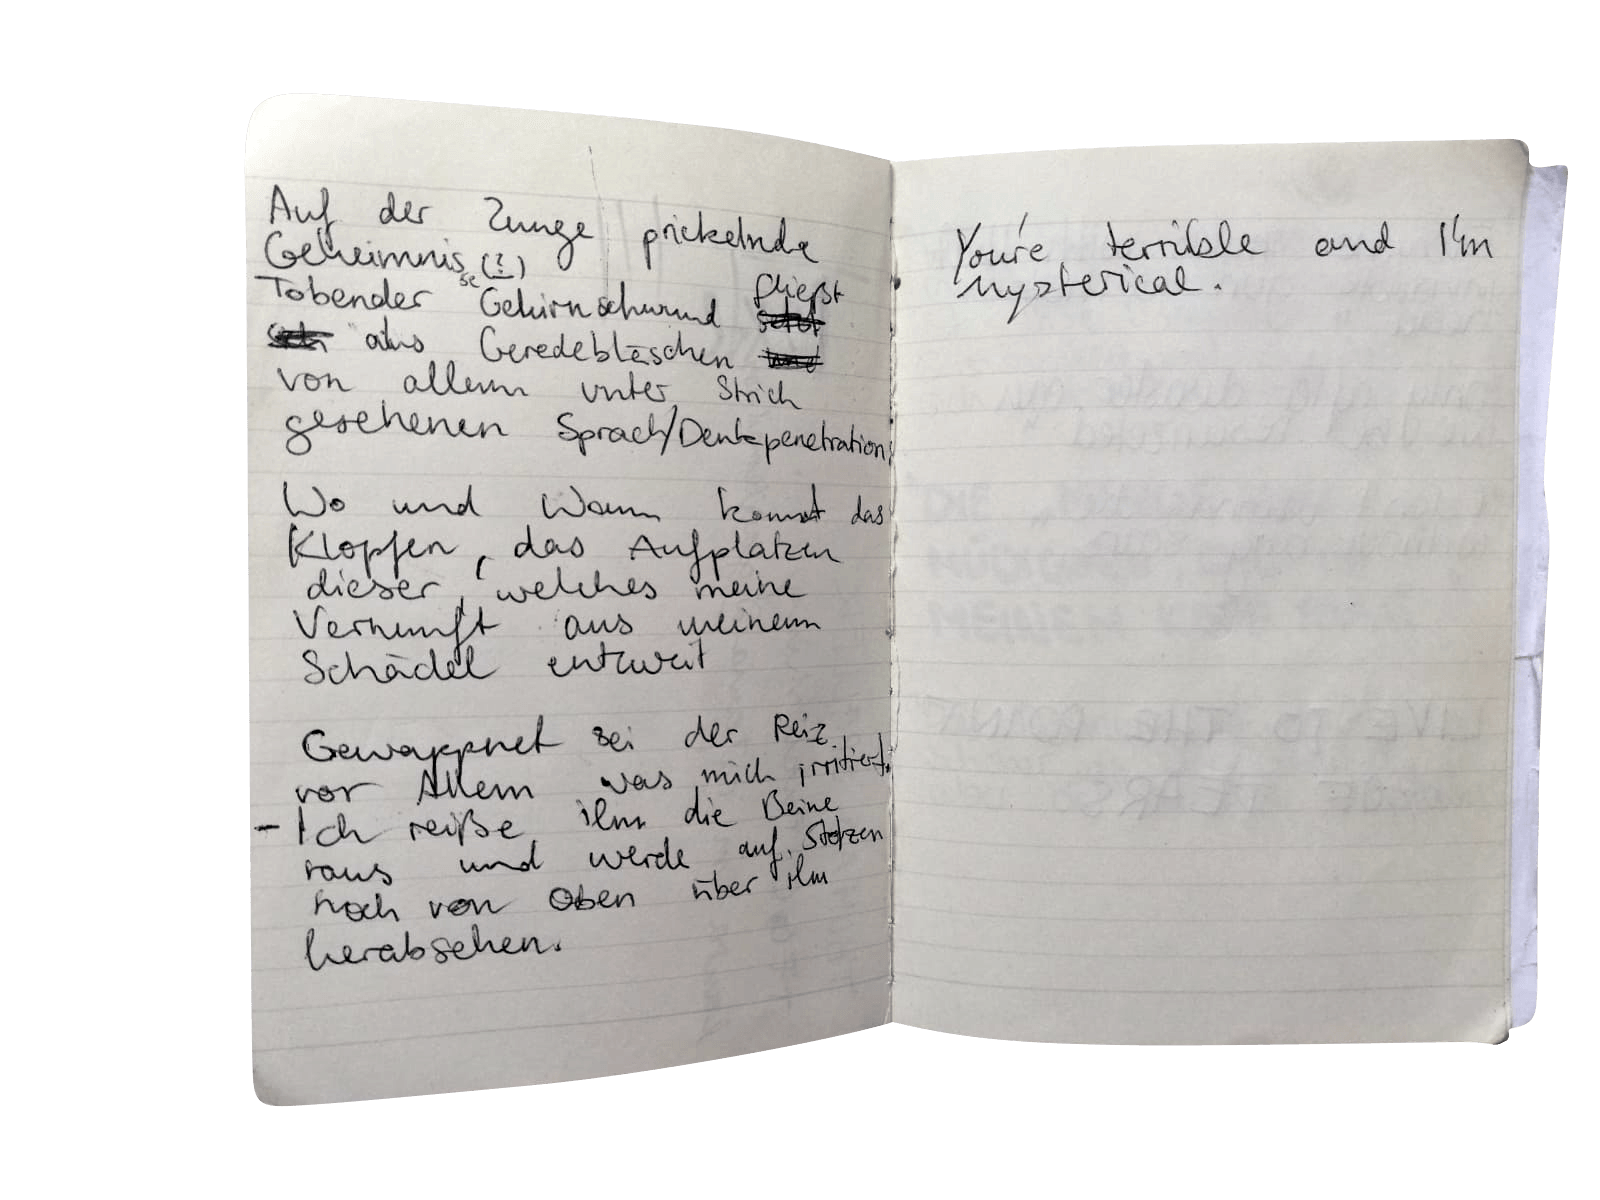 Auf der Zunge prickelnde
Geheimnisse (!)
Tobender Gehirnschwund fließt
aus Geredebläschen
von allem unter Strich
gesehenen Sprach/Denkpenetration
Wo und Wann kommt das
Klopfen, das Aufplatzen
dieser, welches meine
Vernunft aus meinem
Schädel entzweit
Gewappnet sei der Reiz
vor Allem was mich irritiert.
- Ich reiße ihm die Beine
raus und werde auf Stelzen
noch von Oben über ihm
herabsehen.
You're terrible and I'm
mysterical.